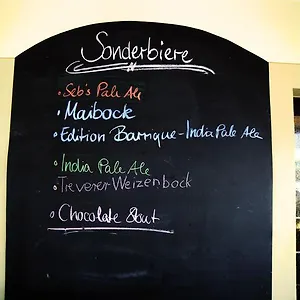 Sonderbiere
• Seb's Pale Ale
• Maibock
• Edition Barrique - India Pale Ale
• India Pale Ale
• Treverer-Weizenbock
• Chocolate Stout